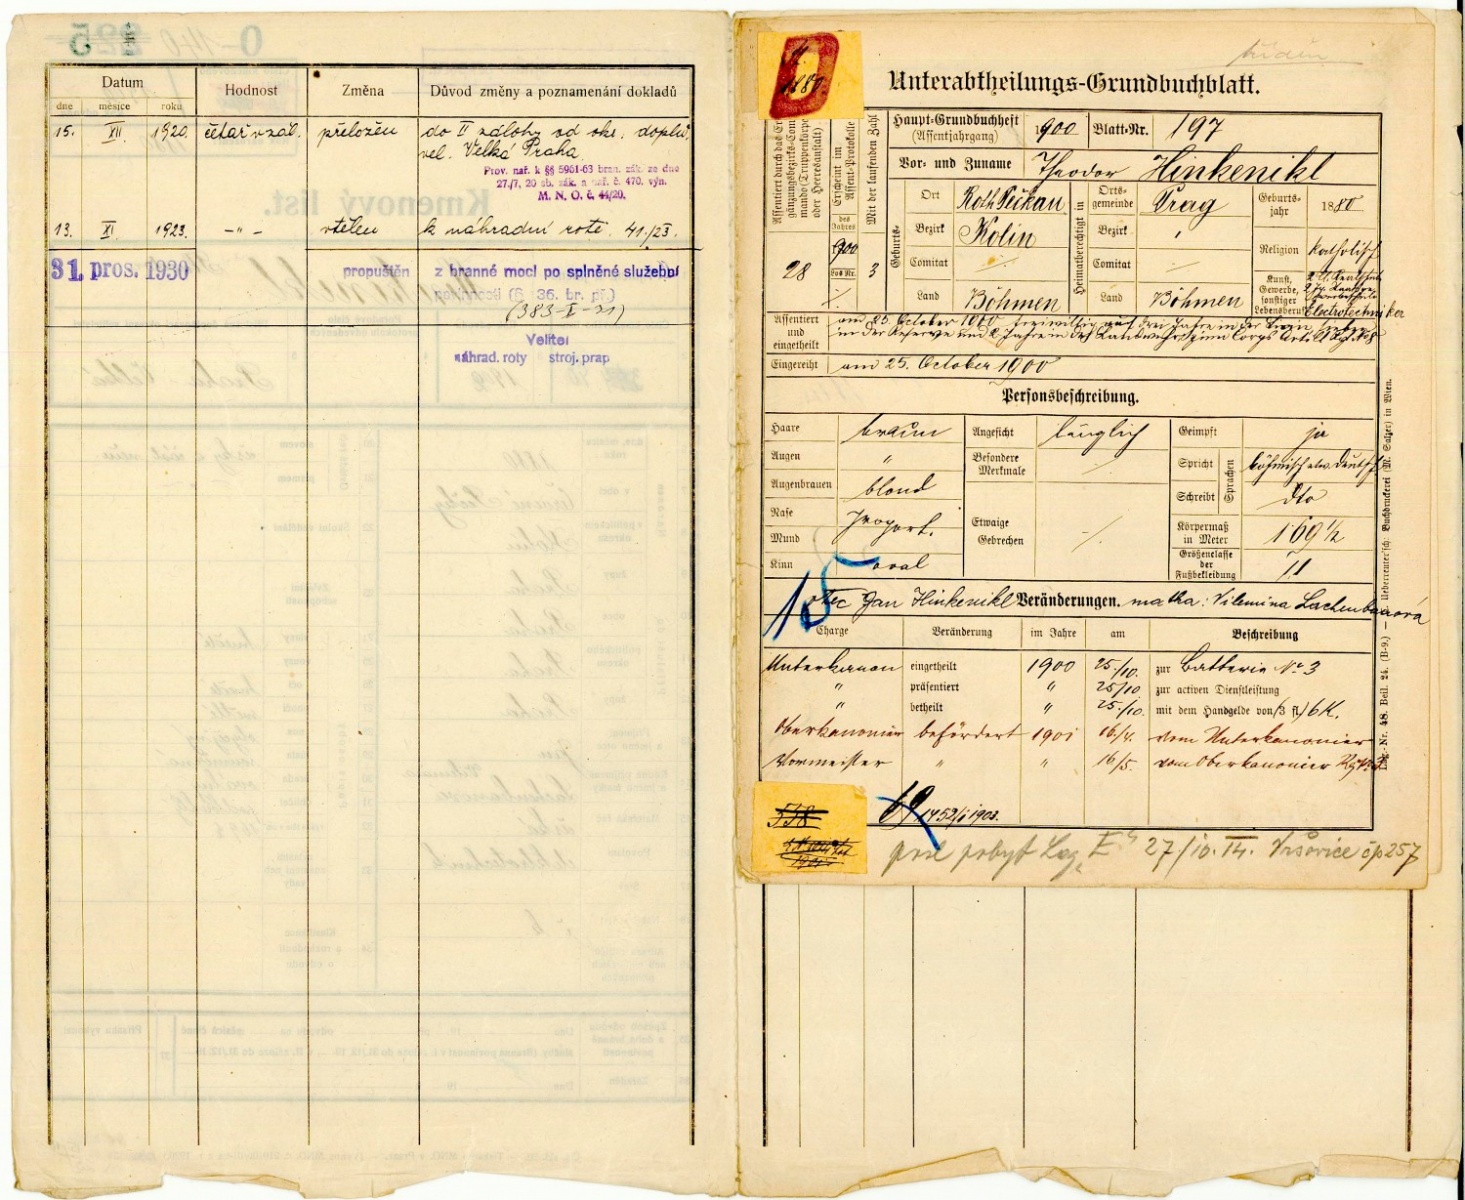 Datum
dne měsíce roku
Hodnost
Změna
Důvod změny a poznamenání dokladů
15. XII 1920. četař v zál. přeložen do II zálohy od okr. doplň.
vel. Velká Praha
Prov. nař. k §§ 5961-63 bran. zák. ze dne
27./7. 20 sb. zák. a nař. č. 470. výn.
M. N. O. č. 44/20.
13. XI. 1923. -"- vtělen k náhradní rotě. 41./23.
31. pros. 1930 propuštěn z branné moci po splněné služební
povinnosti (§ 36. br. př.)
(383-X-31)
Velitel
náhrad. roty stroj. prap
1880
Unterabtheilungs-Grundbuchblatt.
Haupt-Grundbuchheft
(Assentjahrgang)
1900
Blatt-Nr. 197
Vor- und Zuname Theodor Hinkenikl
Mit der laufenden Zahl
des Jahres
1900
28
3
Geburts-
Ort Roth Pečkau
Bezirk Kolin
Comitat
Land Böhmen
Heimatberechtigt in
Ortsgemeinde Prag
Bezirk
Comitat
Land Böhmen
Geburtsjahr 1880
Religion katholisch
Kunst, Gewerbe, sonstiger Lebensberuf
Electrotechniker
Assentiert und eingetheilt
am 25. October 1900 freiwillig auf drei Jahre in der Linie, sieben
in der Reserve und 2 Jahre in der Landwehr
Eingereiht am 25. October 1900
Personsbeschreibung.
Haare braun
Augen "
Augenbrauen blond
Nase proport.
Mund
Kinn oval
Angesicht länglich
Besondere Merkmale
Etwaige Gebrechen
Geimpft ja
Spricht böhmisch etw. deutsch
Schreibt dto
Sprachen
Körpermaß in Meter 169 1/2
Größenclasse der Fußbekleidung 11
15
otec Jan Hinkenikl Veränderungen. matka: Vilemina Lachenbauerová
Charge Veränderung im Jahre am Beschreibung
Unterkanon eingetheilt 1900 25./10. zur Batterie No 3
" präsentiert " 25/10 zur activen Dienstleistung
" betheilt " 25./10. mit dem Handgelde von (3 fl.) 6 K.
Oberkanonier befördert 1901 16/4. vom Unterkanonier
Vormeister " " 16/5. vom Oberkanonier
538
69
1452/1903.
posl pobyt 27/10. 14. Vršovice čp 257
Lag. Nr. 48. Beil. 24. (B-9.) — Ueberreuter'sche Buchdruckerei (M. Salzer) in Wien.